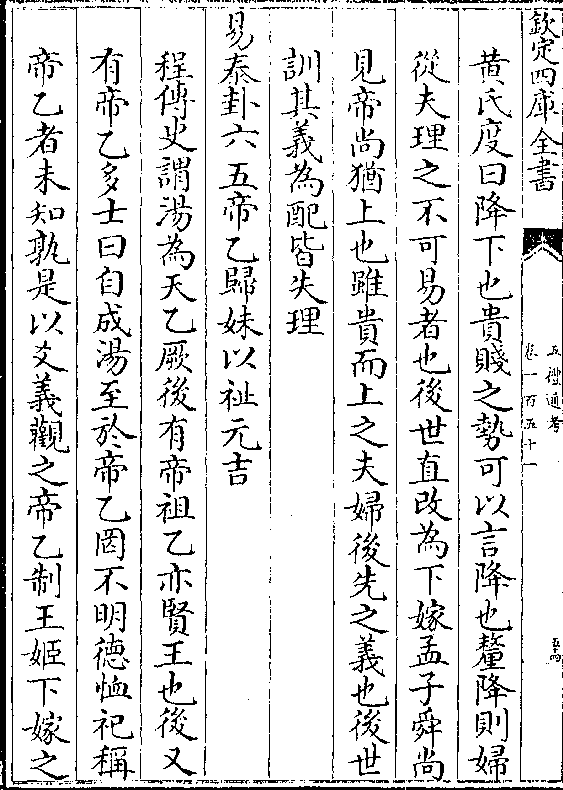 欽定四庫全書
五禮通考
卷一百五十一
五四
黄氏度曰降下也貴賤之勢可以言降也釐降則婦
從夫理之不可易者也後世直改為下嫁孟子舜尚
見帝尚猶上也雖貴而上之夫婦後先之義也後世
訓其義為配皆失理
易泰卦六五帝乙歸妹以祉元吉
程傳史謂湯為天乙厥後有帝祖乙亦賢王也後又
有帝乙多士曰自成湯至於帝乙罔不明徳恤祀稱
帝乙者未知孰是以爻義觀之帝乙制王姬下嫁之